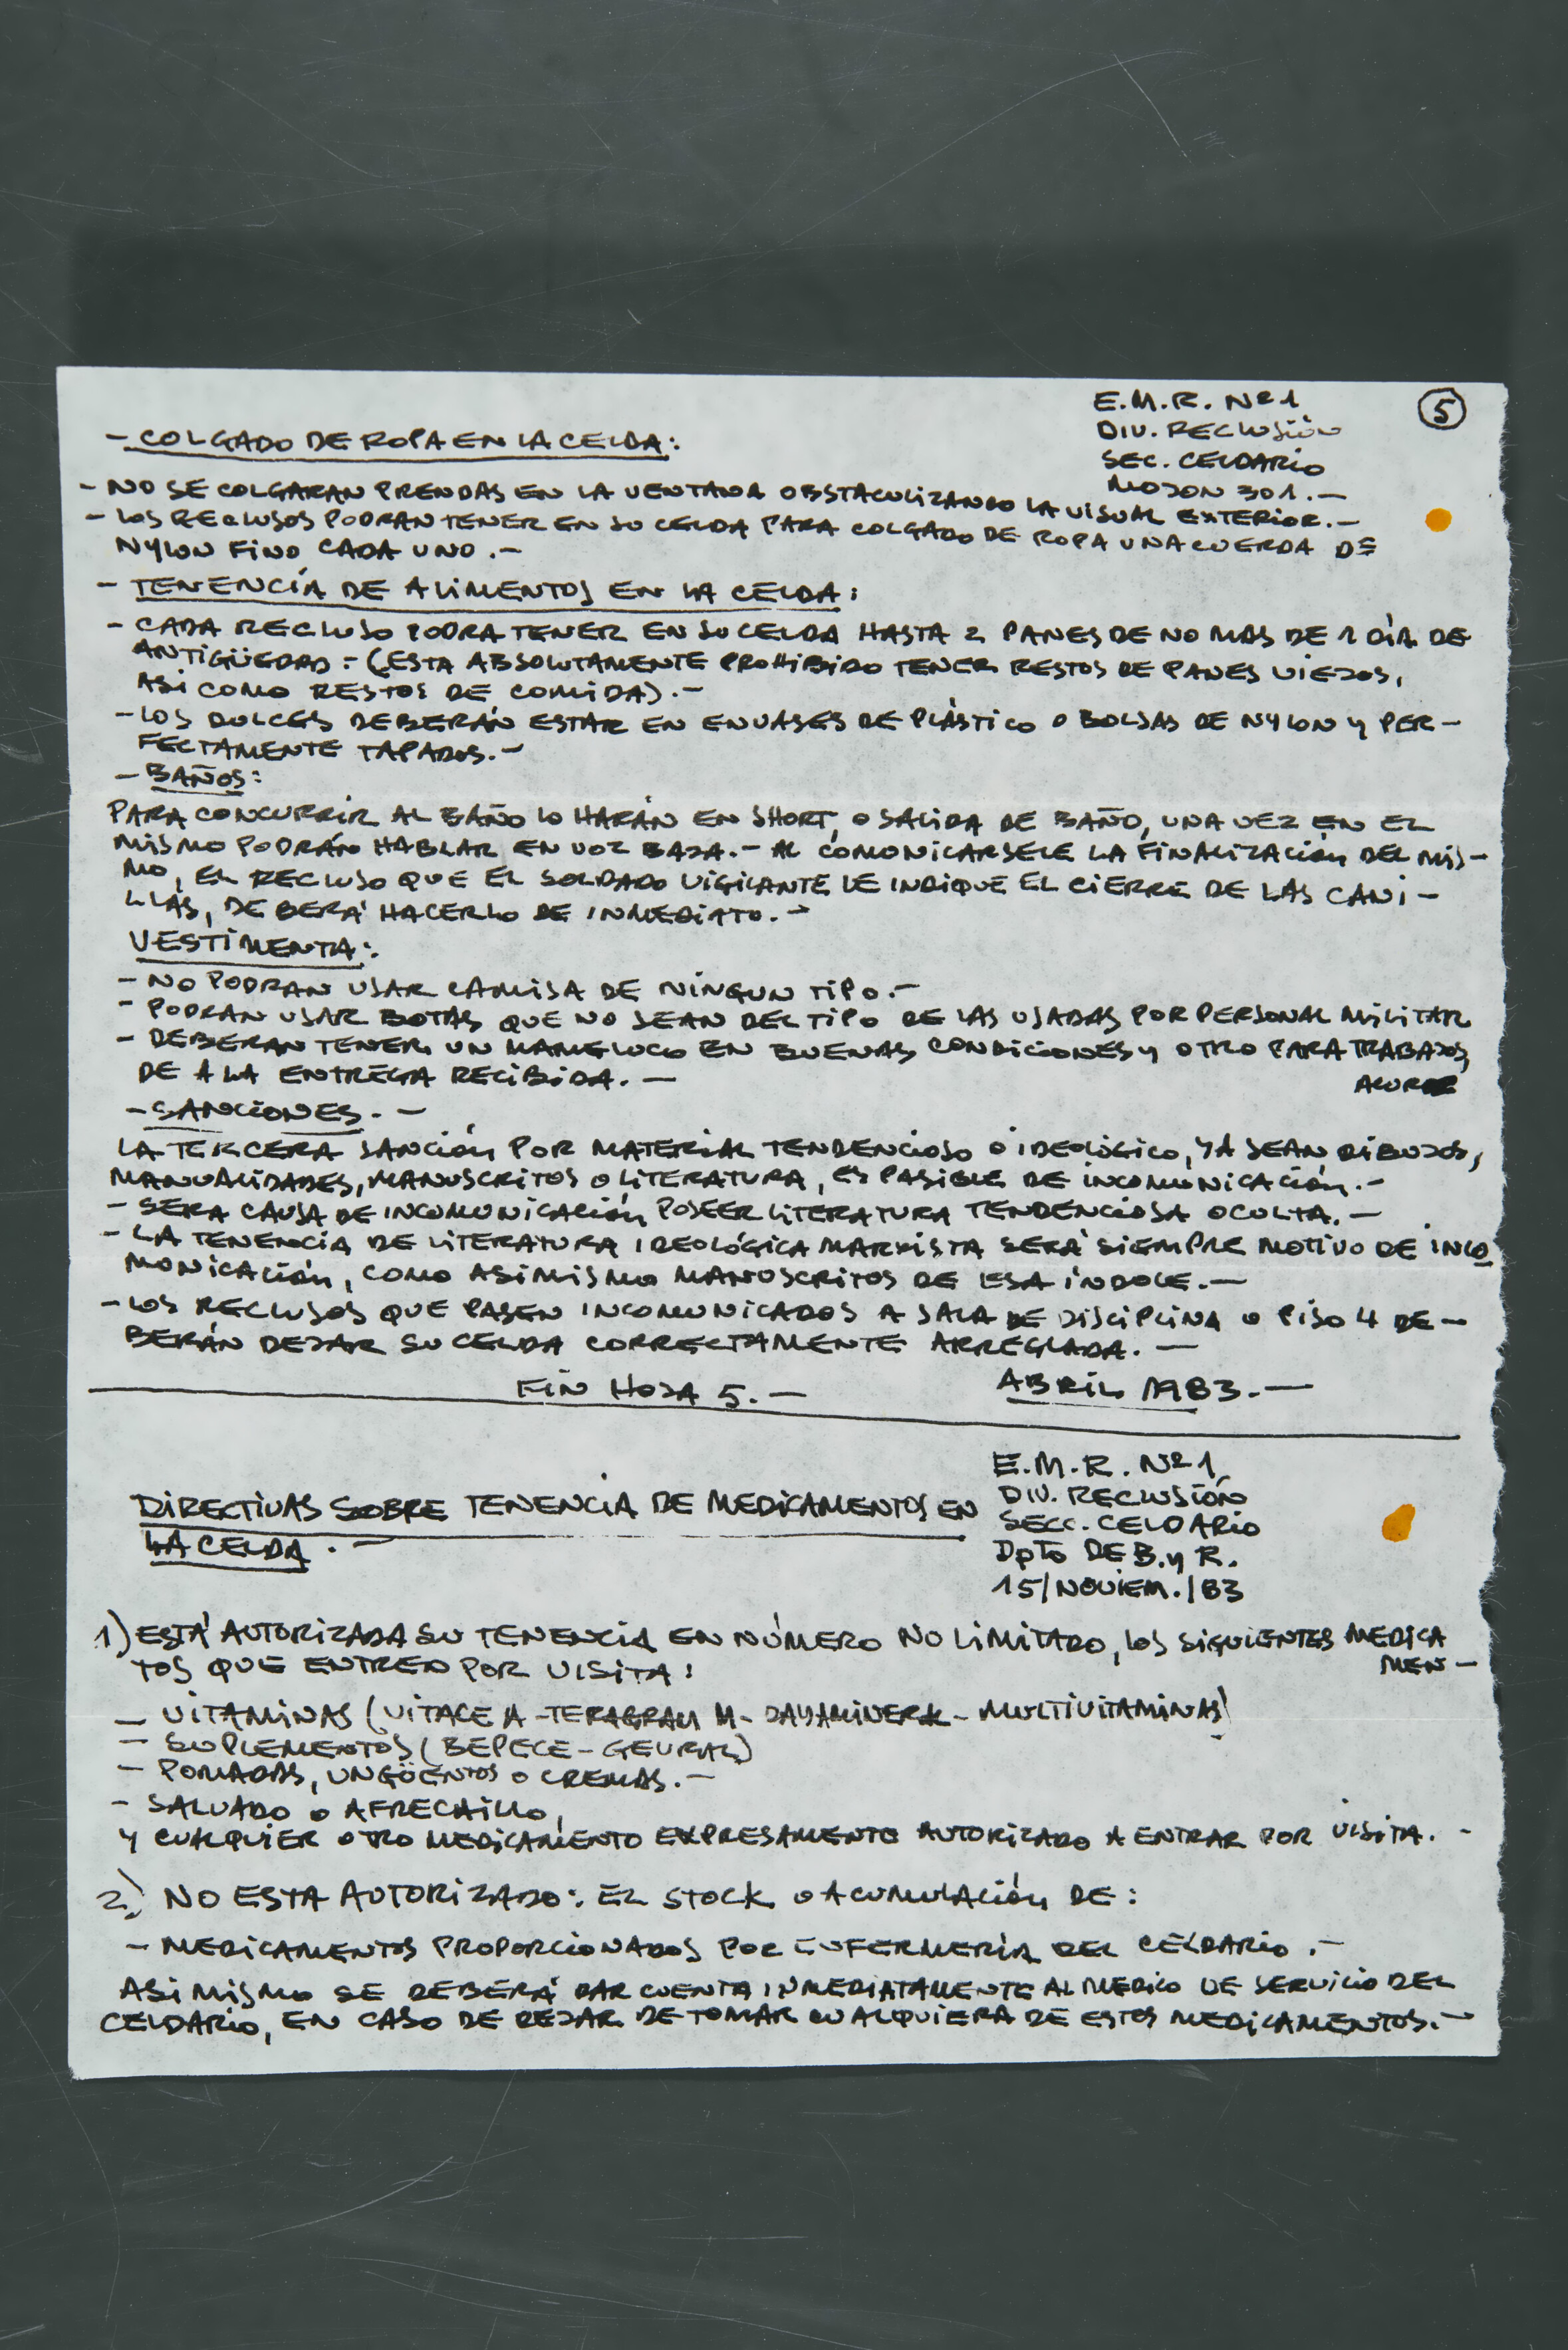 E.M.R. Nº 1
5
DIV. RECLUSIÓN
- COLGADO DE ROPA EN LA CELDA:
SEC. CELDARIO
MOJON 301.-
- NO SE COLGARAN PRENDAS EN LA VENTANA OBSTACULIZANDO LA VISUAL EXTERIOR.-
- LOS RECLUSOS PODRAN TENER EN SU CELDA PARA COLGADO DE ROPA UNA CUERDA DE
NYLON FINO, CADA UNO.-
- TENENCIA DE ALIMENTOS EN LA CELDA:
- CADA RECLUSO PODRA TENER EN SU CELDA HASTA 2 PANES DE NO MAS DE 1 DÍA DE
ANTIGÜEDAD - (ESTA ABSOLUTAMENTE PROHIBIDO TENER RESTOS DE PANES VIEJOS,
ASI COMO RESTOS DE COMIDA).-
- LOS DULCES DEBERÁN ESTAR EN ENVASES DE PLÁSTICO O BOLSAS DE NYLON Y PER-
FECTAMENTE TAPADOS.-
- BAÑOS:
PARA CONCURRIR AL BAÑO LO HARÁN EN SHORT, O SALIDA DE BAÑO, UNA VEZ EN EL
MISMO PODRÁN HABLAR EN VOZ BAJA.- AL COMUNICARSELE LA FINALIZACIÓN DEL MIS-
MO, EL RECLUSO QUE EL SOLDADO VIGILANTE LE INDIQUE EL CIERRE DE LAS CANI-
LLAS, DEBERÁ HACERLO DE INMEDIATO.-
VESTIMENTA:
- NO PODRAN USAR CAMISA DE NINGUN TIPO.-
- PODRAN USAR BOTAS QUE NO SEAN DEL TIPO DE LAS USADAS POR PERSONAL MILITAR
- DEBERAN TENER UN MAMELUCO EN BUENAS CONDICIONES Y OTRO PARA TRABAJOS,
DE A LA ENTREGA RECIBIDA.- ACOR
- SANCIONES.-
LA TERCERA SANCIÓN POR MATERIAL TENDENCIOSO O IDEOLÓGICO, YA SEAN DIBUJOS,
MANUALIDADES, MANUSCRITOS O LITERATURA, ES PASIBLE DE INCOMUNICACIÓN.-
- SERA CAUSA DE INCOMUNICACIÓN POSEER LITERATURA TENDENCIOSA OCULTA.-
- LA TENENCIA DE LITERATURA IDEOLÓGICA MARXISTA SERÁ SIEMPRE MOTIVO DE INCO
MUNICACIÓN, COMO ASIMISMO MANUSCRITOS DE ESA ÍNDOLE.-
- LOS RECLUSOS QUE PASEN INCOMUNICADOS A SALA DE DISCIPLINA O PISO 4 DE-
BERÁN DEJAR SU CELDA CORRECTAMENTE ARREGLADA.-
FIN HOJA 5.- ABRIL 1983.-
E.M.R. Nº 1
DIV. RECLUSIÓN
DIRECTIVAS SOBRE TENENCIA DE MEDICAMENTOS EN
SECC. CELDARIO
LA CELDA.-
DPTO DE B. y R.
15/NOVIEM./83
1) ESTÁ AUTORIZADA SU TENENCIA EN NÚMERO NO LIMITADO, LOS SIGUIENTES MEDICA
MEN-
TOS QUE ENTREN POR VISITA:
- VITAMINAS (VITACE A - TERAGRAM M - DAYAMINERK - MULTIVITAMINAS)
- SUPLEMENTOS (BEPECE - GEVRAL)
- POMADAS, UNGÜENTOS O CREMAS.-
- SALVADO O AFRECHILLO,
Y CUALQUIER OTRO MEDICAMENTO EXPRESAMENTE AUTORIZADO A ENTRAR POR VISITA.-
2) NO ESTA AUTORIZADO: EL STOCK O ACUMULACIÓN DE:
- MEDICAMENTOS PROPORCIONADOS POR ENFERMERÍA DEL CELDARIO.-
ASI MISMO SE DEBERÁ DAR CUENTA INMEDIATAMENTE AL MEDICO DE SERVICIO DEL
CELDARIO, EN CASO DE DEJAR DE TOMAR CUALQUIERA DE ESTOS MEDICAMENTOS.-